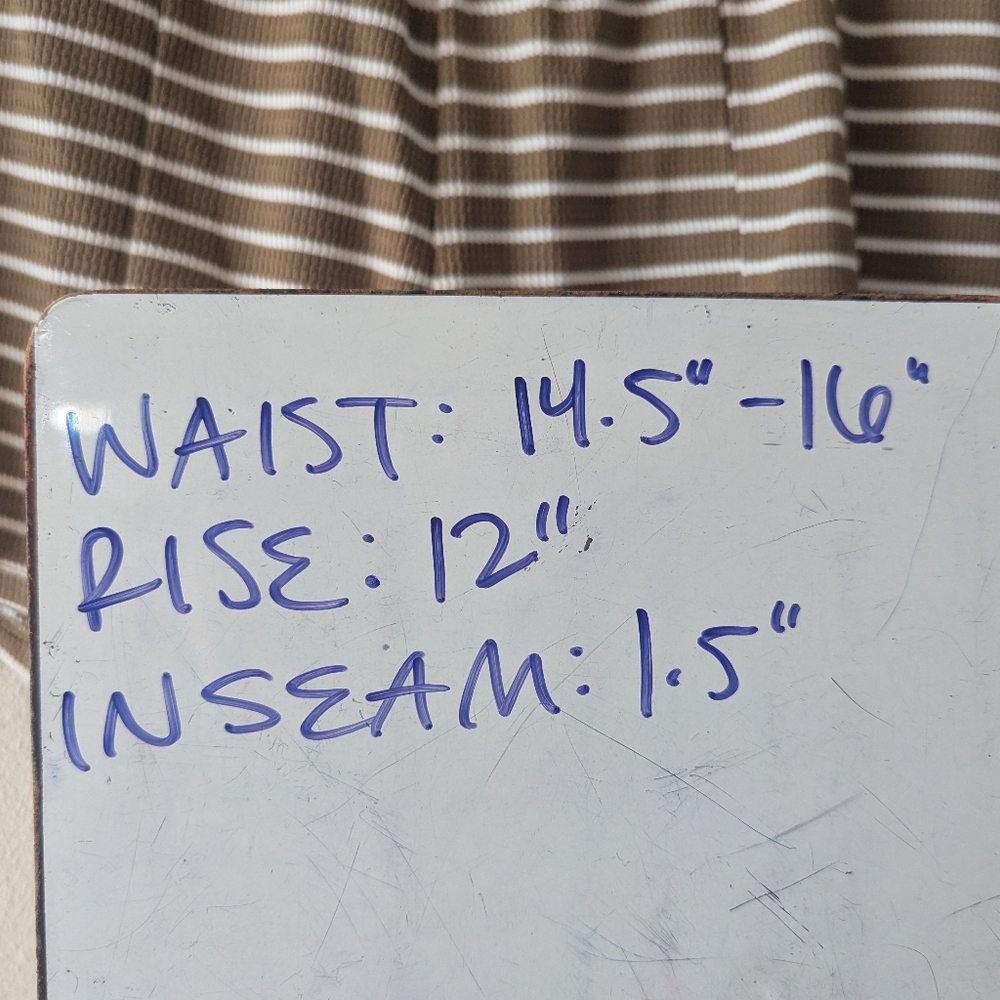 WAIST: 14.5" - 16"
RISE: 12"
INSEAM: 1.5"